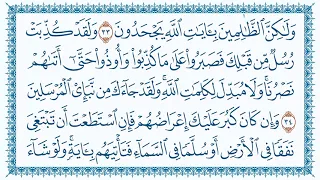 وَلَٰكِنَّ ٱلظَّٰلِمِينَ بِـَٔايَٰتِ ٱللَّهِ يَجْحَدُونَ ٣٣ وَلَقَدْ كُذِّبَتْ
رُسُلٌ مِّن قَبْلِكَ فَصَبَرُوا۟ عَلَىٰ مَا كُذِّبُوا۟ وَأُوذُوا۟ حَتَّىٰٓ أَتَىٰهُمْ
نَصْرُنَا ۚ وَلَا مُبَدِّلَ لِكَلِمَٰتِ ٱللَّهِ ۚ وَلَقَدْ جَآءَكَ مِن نَّبَإِى۟ ٱلْمُرْسَلِينَ
٣٤ وَإِن كَانَ كَبُرَ عَلَيْكَ إِعْرَاضُهُمْ فَإِنِ ٱسْتَطَعْتَ أَن تَبْتَغِىَ
نَفَقًا فِى ٱلْأَرْضِ أَوْ سُلَّمًا فِى ٱلسَّمَآءِ فَتَأْتِيَهُم بِـَٔايَةٍ ۚ وَلَوْ شَآءَ